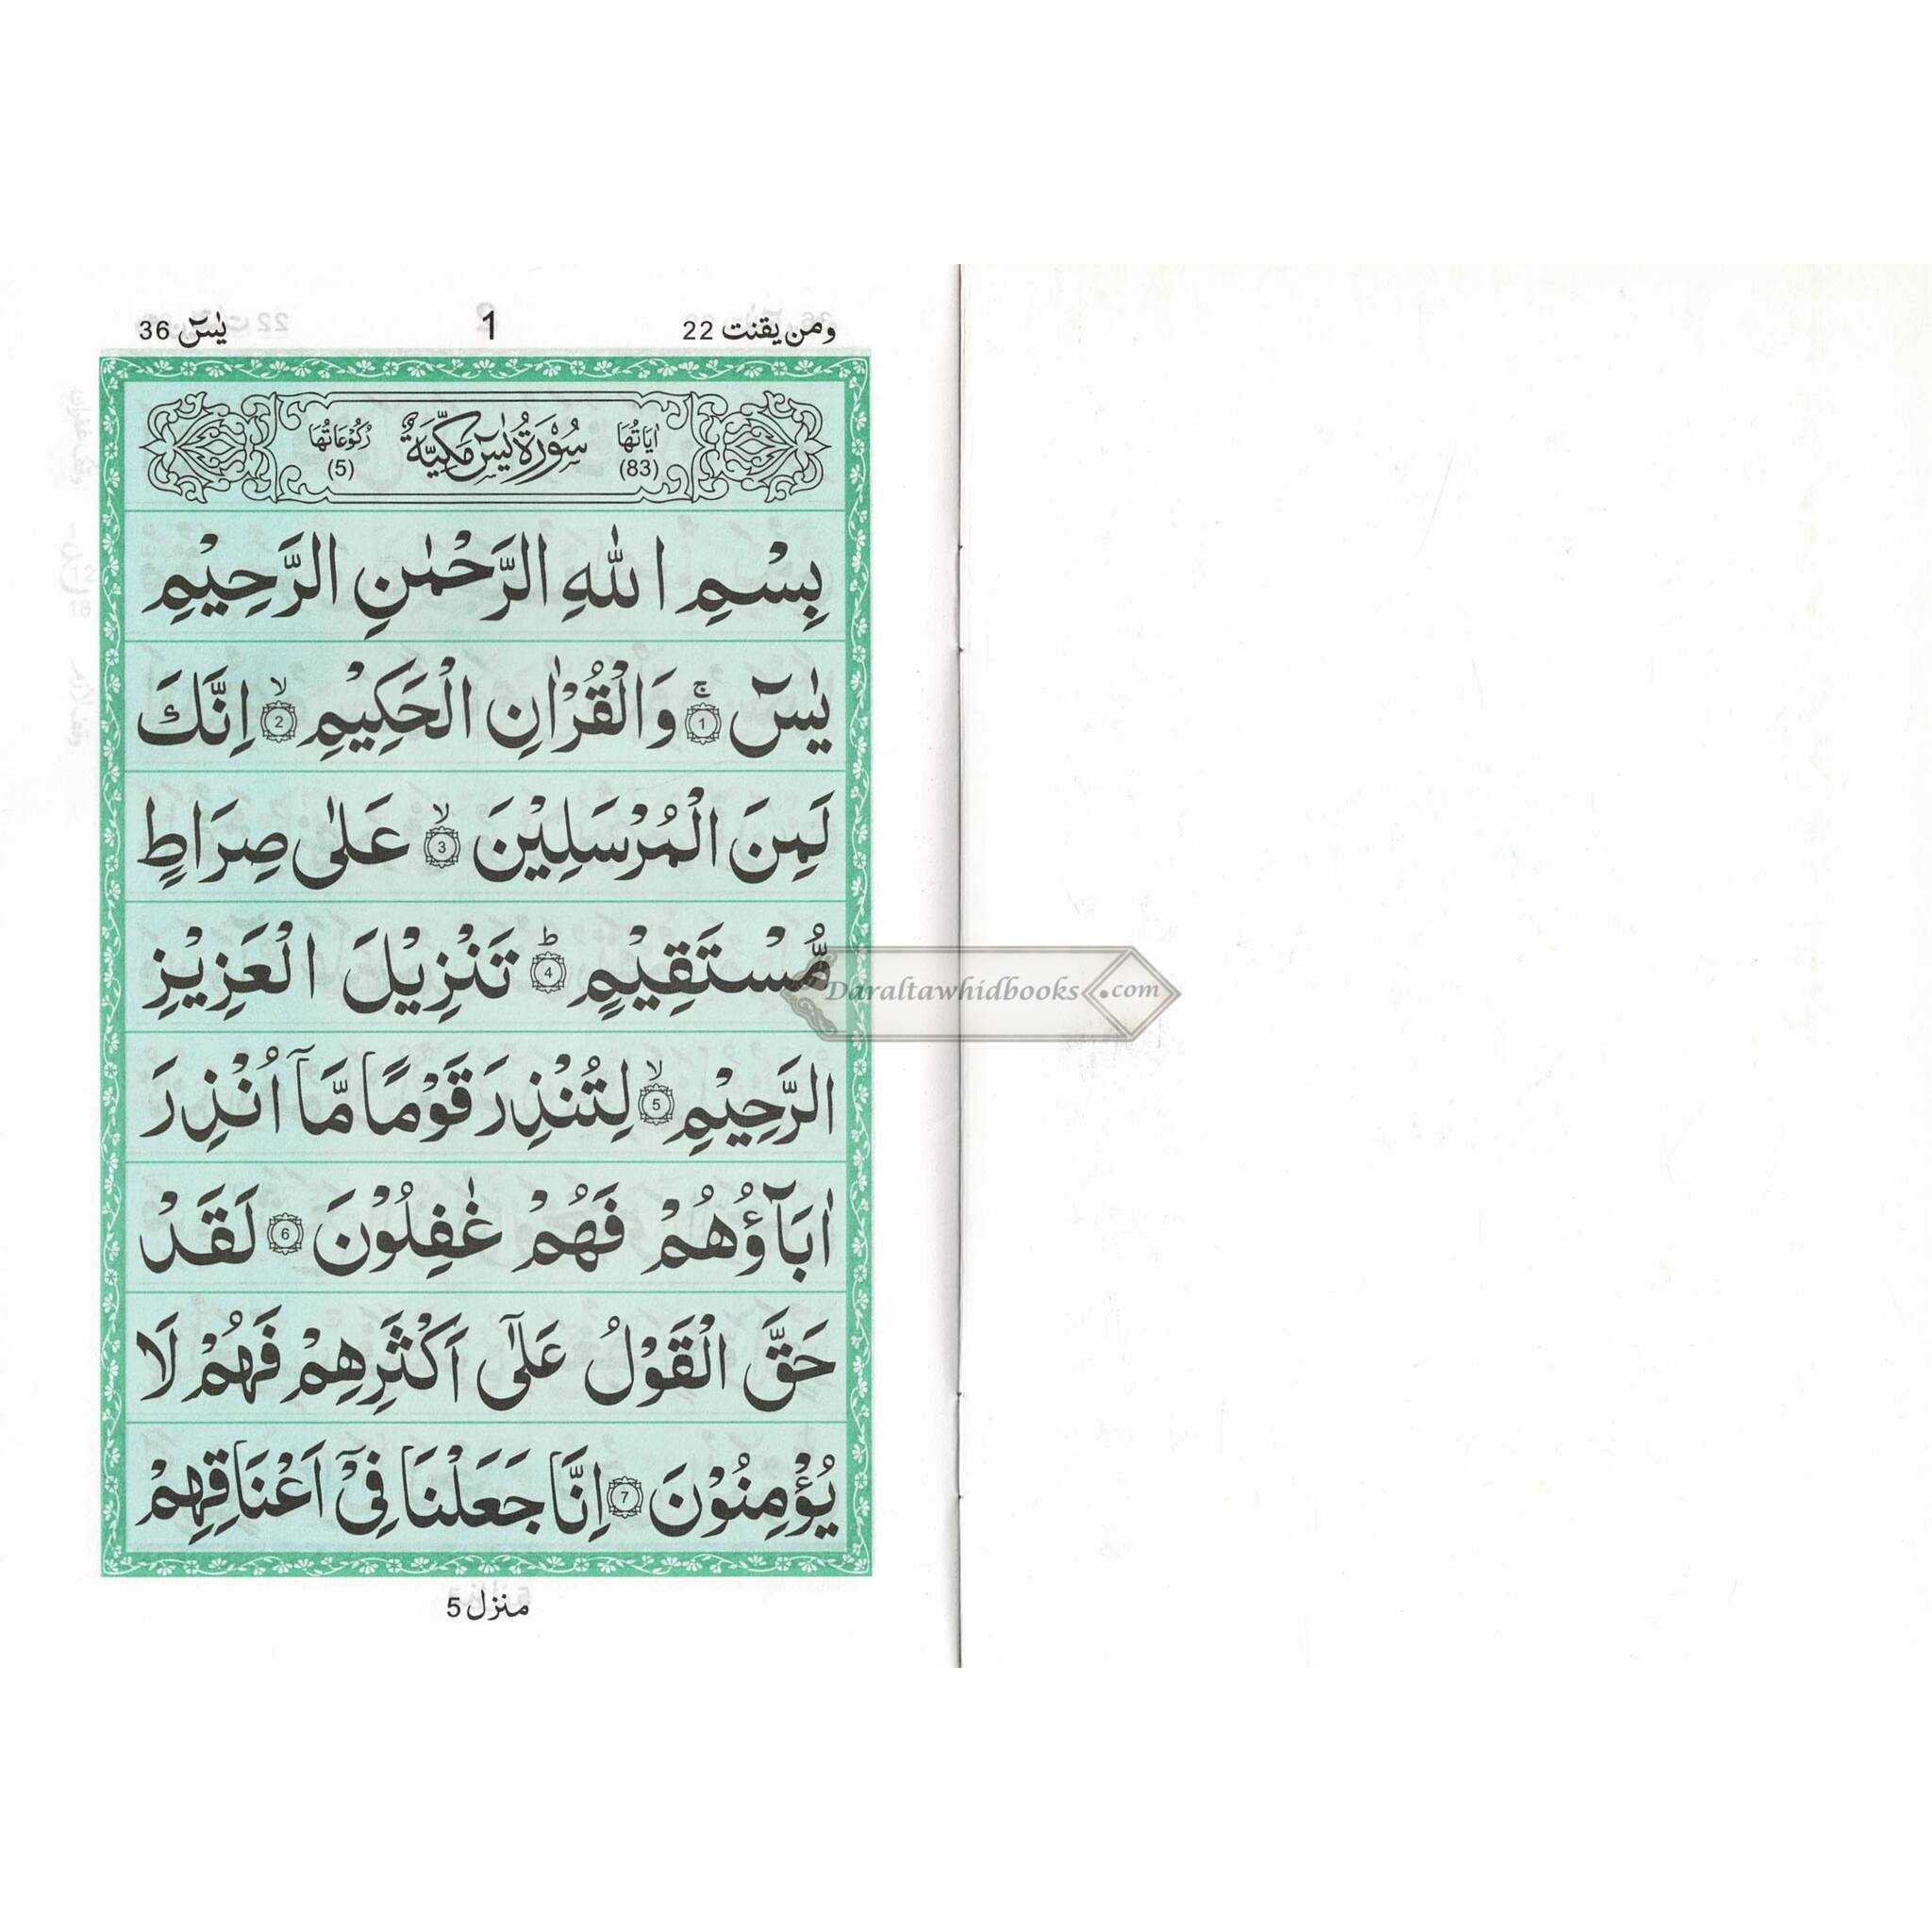 ومن يقنت 22
1
يٰسٓ 36
اٰيَاتُهَا (83)
سُوْرَةُ يٰسٓ مَكِّيَّةٌ
رُكُوْعَاتُهَا (5)
بِسْمِ اللّٰهِ الرَّحْمٰنِ الرَّحِيْمِ
يٰسٓ ۚ 1 وَالْقُرْاٰنِ الْحَكِيْمِ ۙ 2 اِنَّكَ
لَمِنَ الْمُرْسَلِيْنَ ۙ 3 عَلٰى صِرَاطٍ
مُّسْتَقِيْمٍ ؕ 4 تَنْزِيْلَ الْعَزِيْزِ
الرَّحِيْمِ ۙ 5 لِتُنْذِرَ قَوْمًا مَّآ اُنْذِرَ
اٰبَآؤُهُمْ فَهُمْ غٰفِلُوْنَ 6 لَقَدْ
حَقَّ الْقَوْلُ عَلٰٓى اَكْثَرِهِمْ فَهُمْ لَا
يُؤْمِنُوْنَ 7 اِنَّا جَعَلْنَا فِىْٓ اَعْنَاقِهِمْ
منزل 5
Daraltawhidbooks.com